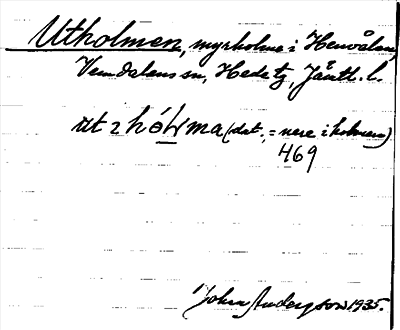 Utholmen, myrholme i Henvålen,
Vemdalens sn, Hede tg, Jämtl. l.
(dat., = nere i holmen)
469
John Anderson 1935.